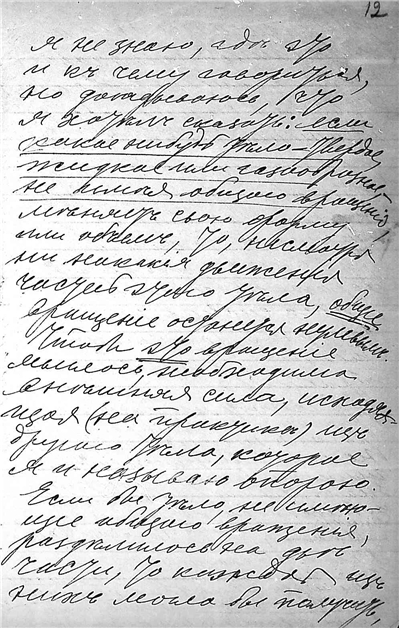 12
я не знаю, гдѣ это
и къ чему говорится,
но догадываюсь, что
я хотѣлъ сказать: если
какое нибудь тѣло – твердое,
жидкое или газообразное –
не имѣя общаго вращенія,
мѣняетъ свою форму
или объемъ, то, несмотря
ни на какія движенія
частей этого тѣла, общее
вращеніе останется нулевымъ.
Чтобы это вращеніе
явилось, необходима
внѣшняя сила, исходя-
щая (на практикѣ) изъ
другого тѣла, которое
я и называю опорою.
Если бы тѣло, не имѣю-
щее общаго вращенія,
раздѣлилось на двѣ
части, то каждая изъ
нихъ могла бы получить